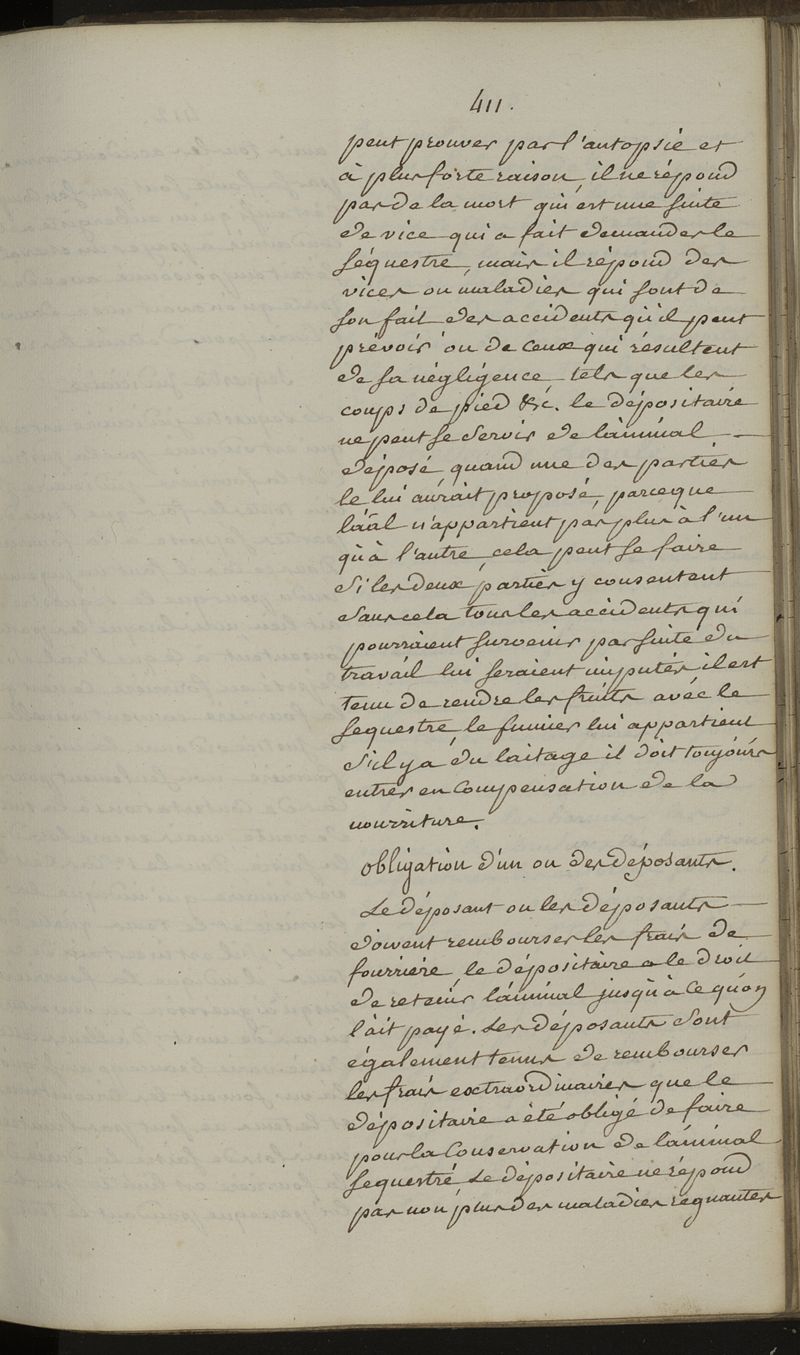 411.
peut prouver par l'autopsie et
à plus forte raison, il ne répond
pas de la mort qui est une suite
de vice qui a fait demander le
séquestre, mais il répond des
vices ou maladies qui sont de
son fait des accidents qu'il peut
prévoir ou de ceux qui résultent
de sa négligence tels que les
coups de pied &c. le dépositaire
ne peut se servir de l'animal
déposé quand une des parties
le lui aurait proposé, parceque
l'aal n'appartient pas plus à l'un
qu'à l'autre, cela peut se faire
si les deux parties y consentent
sans cela tous les accidents qui
pourraient survenir par suite du
travail lui seraient imputés il est
tenu de rendre les fruits avec le
sequestre, le fumier lui appartient
s'il y a du laitage il doit toujours
entrer en compensation de la
nourriture.
obligation d'un ou des déposants.
Le déposant ou les déposants
doivent rembourser les frais de
fourrière, le dépositaire a le droit
de retenir l'animal jusqu'à ce qu'on
l'ait payé. Les déposants sont
également tenus de rembourser
les frais extraordinaires que le
dépositaire a été obligé de faire
pour la conservation de l'animal
sequestré. Le dépositaire ne répond
pas non plus des maladies régnantes